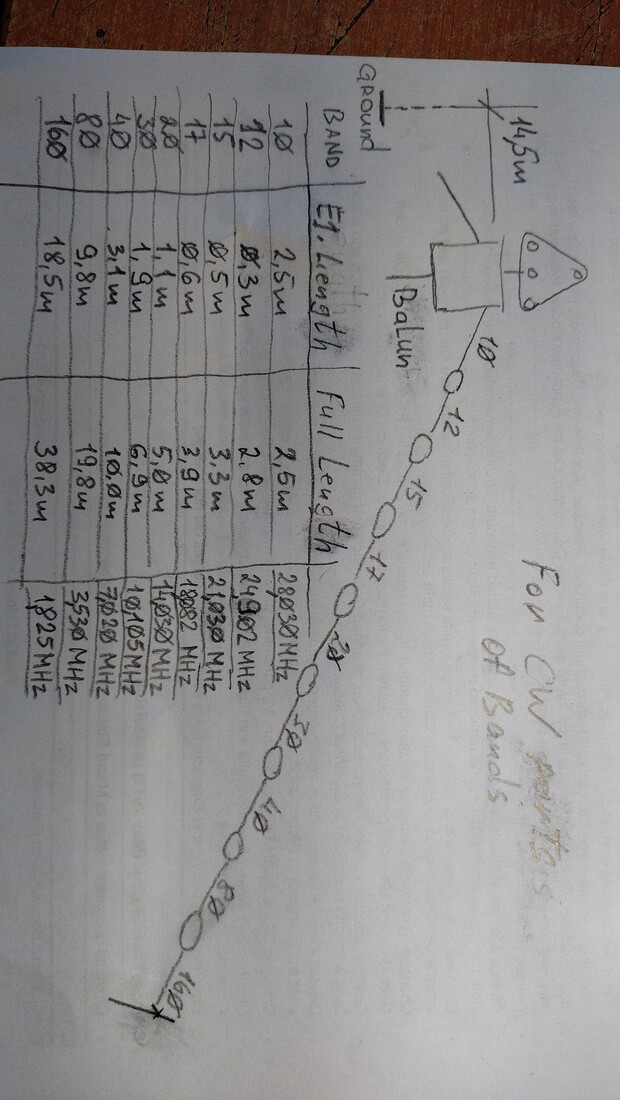 14,5m
GROUND
BaLun
10
12
15
17
20
30
40
80
160
For CW
of Bands
BAND El. Length Full Length
10 2,5m 2,5m 28,030MHz
12 0,3m 2,8m 24,902 MHz
15 0,5m 3,3m 21,030 MHz
17 0,6m 3,9m 18,082 MHz
20 1,1m 5,0m 14,030MHz
30 1,9m 6,9m 10,105MHz
40 3,1m 10,0m 7,020 MHz
80 9,8m 19,8m 3,530 MHz
160 18,5m 38,3m 1,825MHz